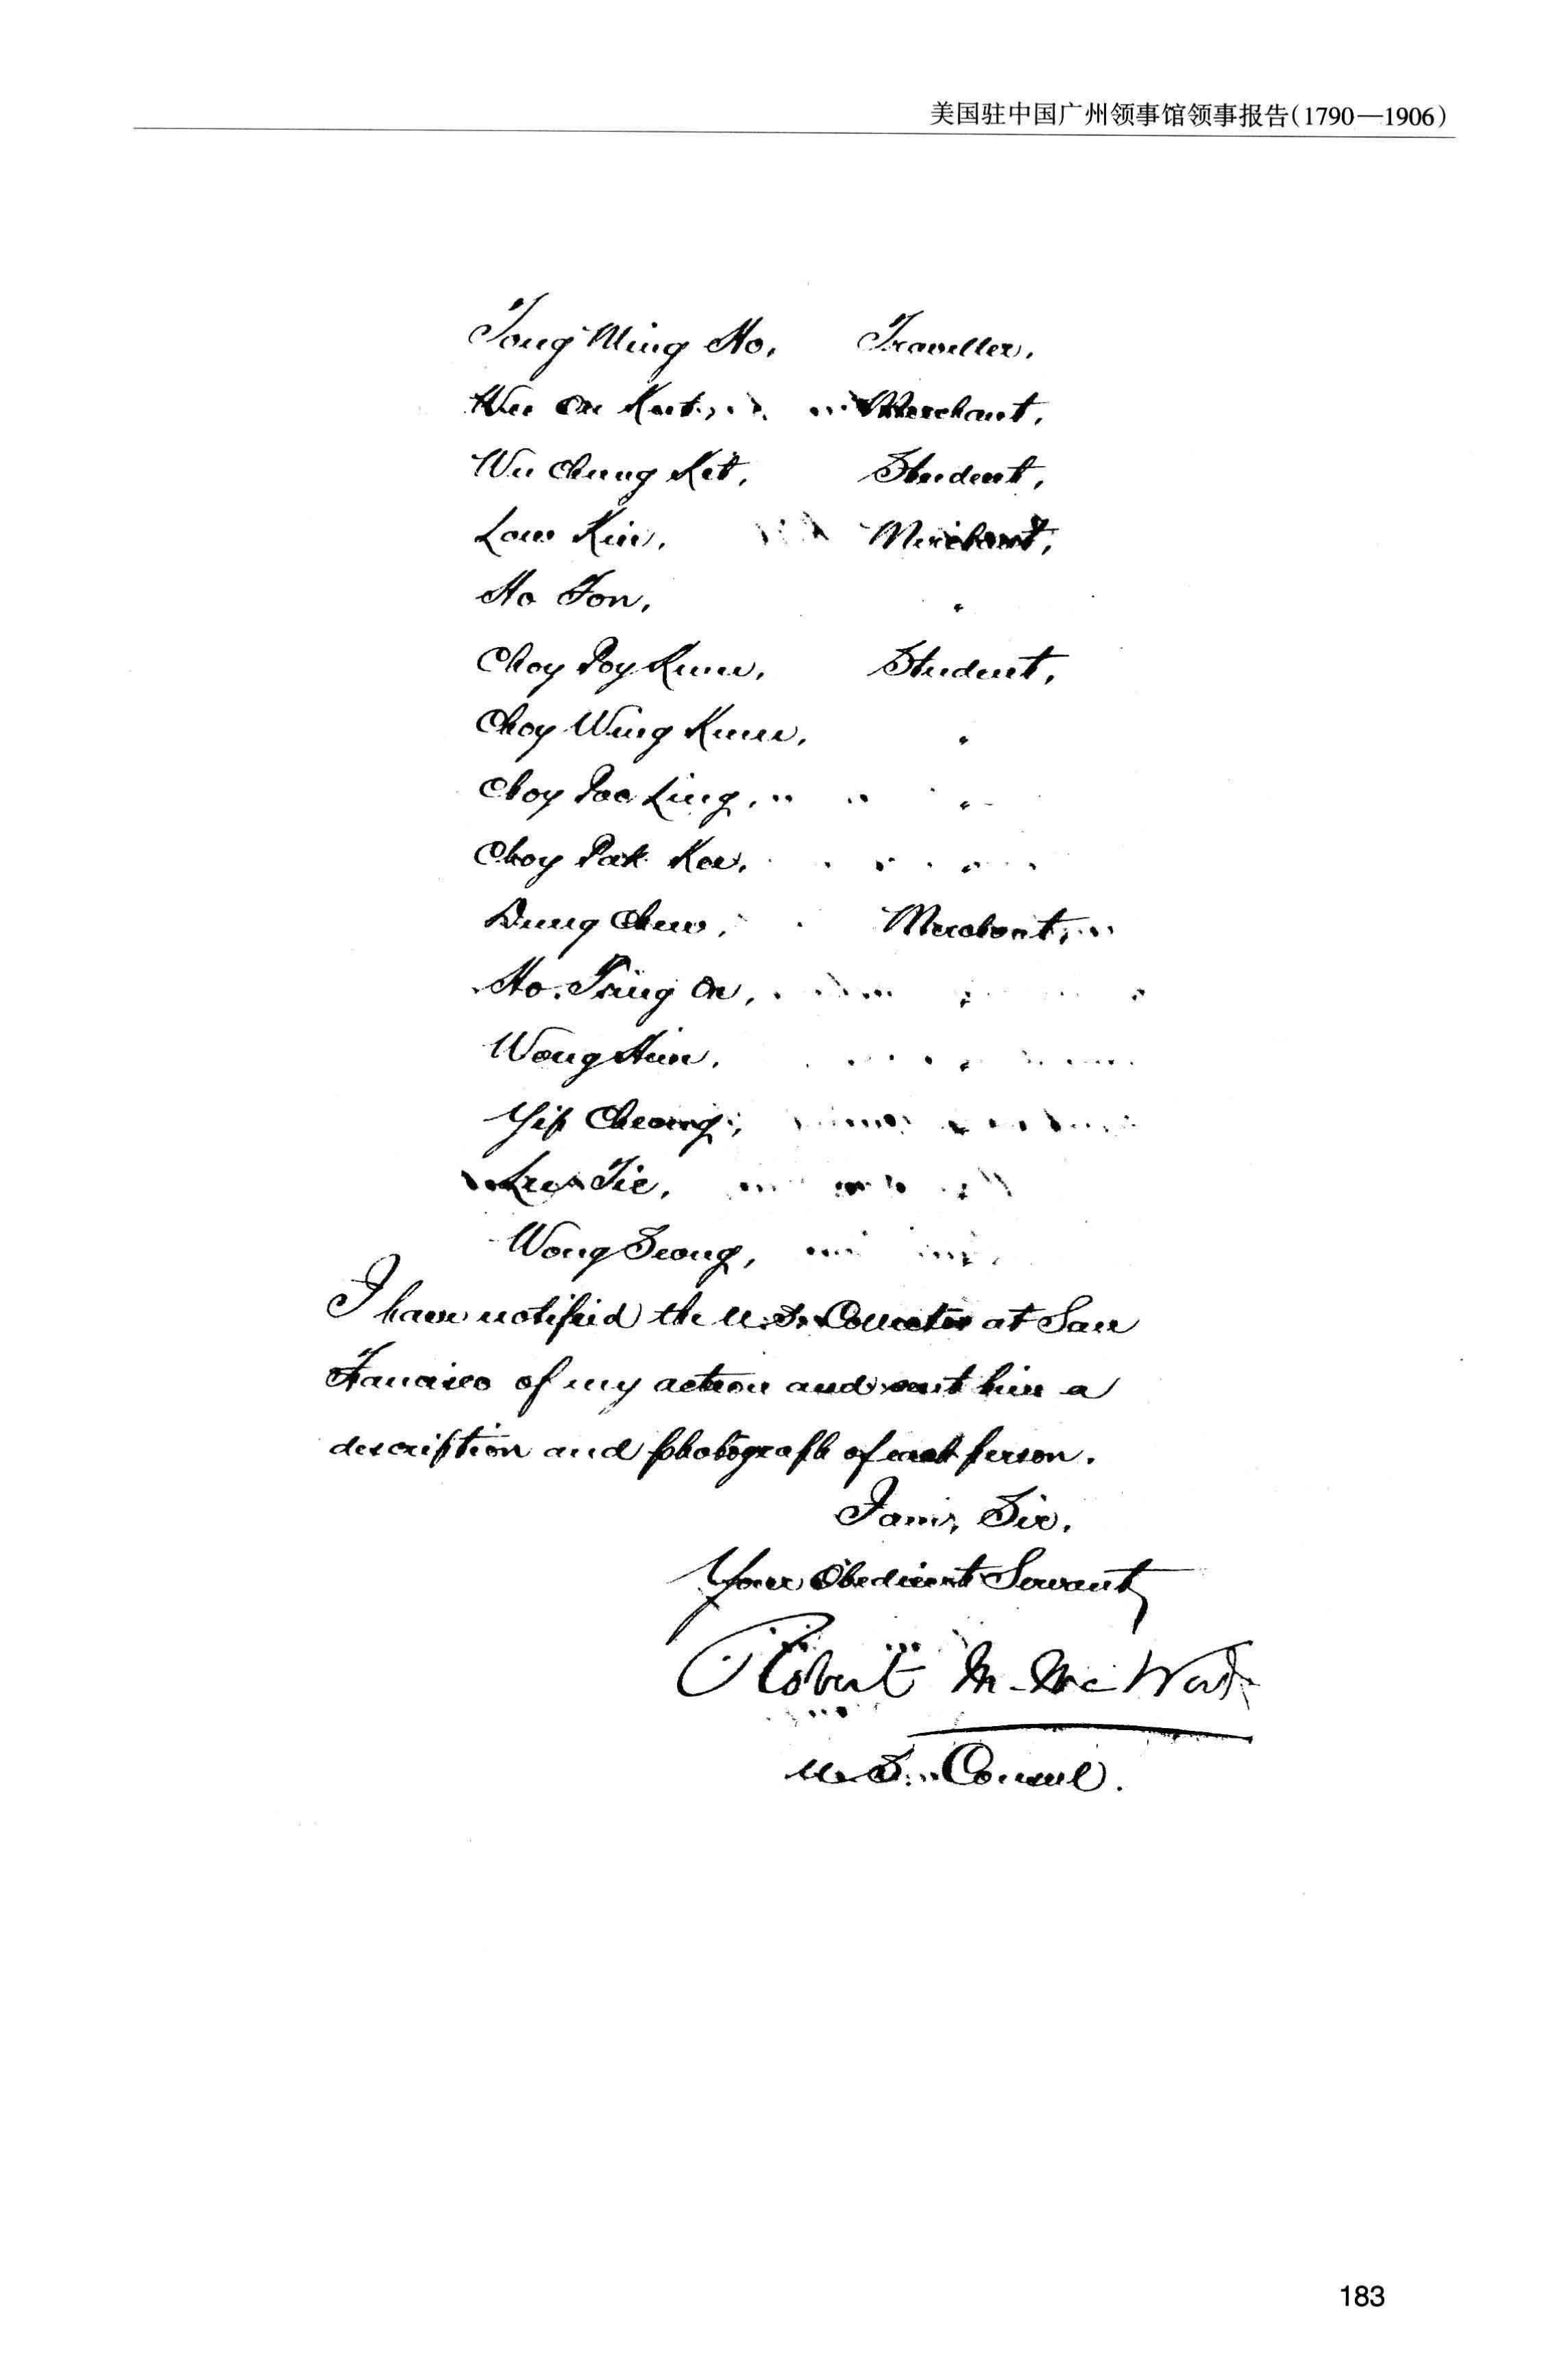 美国驻中国广州领事馆领事报告(1790—1906)
Tong Ming Ho, Traveller,
Wu On Kut, Merchant,
Wu Chung Kit, Student,
Low Kin, Merchant,
Ho Fon, "
Choy Poy Kum, Student,
Choy Wing Kum, "
Choy Poo Ling, "
Choy Pak Kee, "
Dung Chew, Merchant,
Ho Tsing On, "
Wong Hin, "
Yip Cheong, "
Lee Tie, "
Wong Seong, "
I have notified the U.S. Collector at San
Fancisco of my action and sent him a
description and photograph of each person.
I am, Sir,
Your Obedient Servant,
Robert M. McWade
U.S. Consul.
183